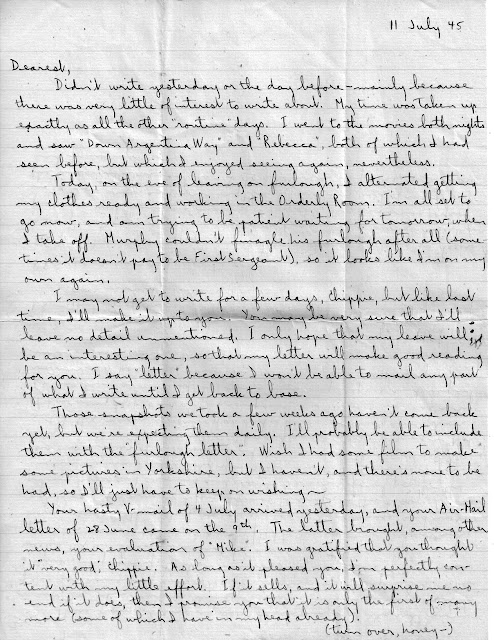 11 July 45
Dearest,
Didn't write yesterday or the day before - mainly because
there was very little of interest to write about. My time was taken up
exactly as all the other "routine" days. I went to the movies both nights
and saw "Down Argentina Way" and "Rebecca", both of which I had
seen before, but which I enjoyed seeing again, nevertheless.
Today, on the eve of leaving on furlough, I alternated getting
my clothes ready and working in the Orderly Room. I'm all set to
go now, and am trying to be patient waiting for tomorrow, when
I take off. Murphy couldn't finagle his furlough after all (some
times it doesn't pay to be First Sergeant), so it looks like I'm on my
own again.
I may not get to write for a few days, chippie, but like last
time, I'll make it up to you. You may be very sure that I'll
leave no detail unmentioned. I only hope that my leave will
be an interesting one, so that my letter will make good reading
for you. I say "letter" because I won't be able to mail any part
of what I write until I get back to base.
Those snapshots we took a few weeks ago haven't come back
yet, but we're expecting them daily. I'll probably be able to include
them with the "furlough letter". Wish I had some film to make
some pictures in Yorkshire, but I haven't, and there's none to be
had, so I'll just have to keep on wishing ~
Your hasty V-mail of 4 July arrived yesterday, and your Air-Mail
letter of 28 June came on the 9th. The latter brought, among other
news, your evaluation of "Mike". I was gratified that you thought
it "very good", chippie. As long as it pleased you, I'm perfectly con-
tent with my little effort. If it sells, and it will surprise me no
end if it does, then I promise you that it is only the first of many
more (some of which I have in my head already).
(turn over, honey -)